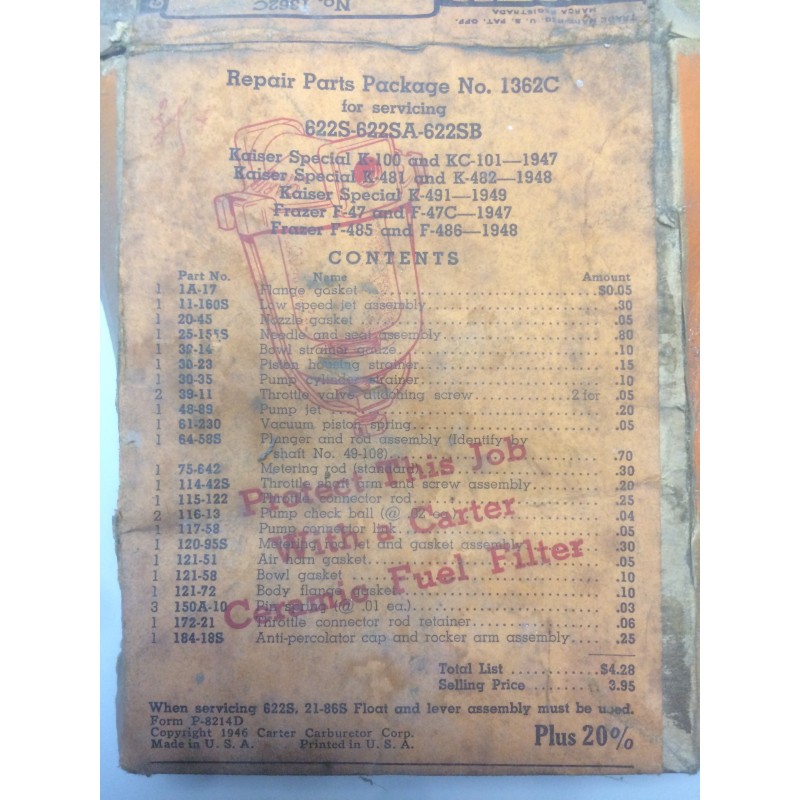 No. 1362C
TRADE MARK REG. U. S. PAT. OFF.
MARCA REGISTRADA
Repair Parts Package No. 1362C
for servicing
622S-622SA-622SB
Kaiser Special K-100 and KC-101—1947
Kaiser Special K-481 and K-482—1948
Kaiser Special K-491—1949
Frazer F-47 and F-47C—1947
Frazer F-485 and F-486—1948
CONTENTS
Part No. Name Amount
1 1A-17 Flange gasket $0.05
1 11-160S Low speed jet assembly .30
1 20-45 Nozzle gasket .05
1 25-155S Needle and seat assembly .80
1 30-14 Bowl strainer gauze .10
1 30-23 Piston housing strainer .15
1 30-35 Pump cylinder strainer .10
2 39-11 Throttle valve attaching screw 2 for .05
1 48-89 Pump jet .20
1 61-230 Vacuum piston spring .05
1 64-58S Plunger and rod assembly (Identify by
shaft No. 49-108) .70
1 75-642 Metering rod (standard) .30
1 114-42S Throttle shaft arm and screw assembly .20
1 115-122 Throttle connector rod .25
2 116-13 Pump check ball (@ .02 ea.) .04
1 117-58 Pump connector link .05
1 120-95S Metering rod jet and gasket assembly .30
1 121-51 Air horn gasket .05
1 121-58 Bowl gasket .10
1 121-72 Body flange gasket .10
3 150A-10 Pin spring (@ .01 ea.) .03
1 172-21 Throttle connector rod retainer .06
1 184-18S Anti-percolator cap and rocker arm assembly .25
Protect This Job
With a Carter
Ceramic Fuel Filter
Total List $4.28
Selling Price 3.95
When servicing 622S, 21-86S Float and lever assembly must be used.
Form P-8214D
Copyright 1946 Carter Carburetor Corp.
Made in U. S. A. Printed in U. S. A.
Plus 20%